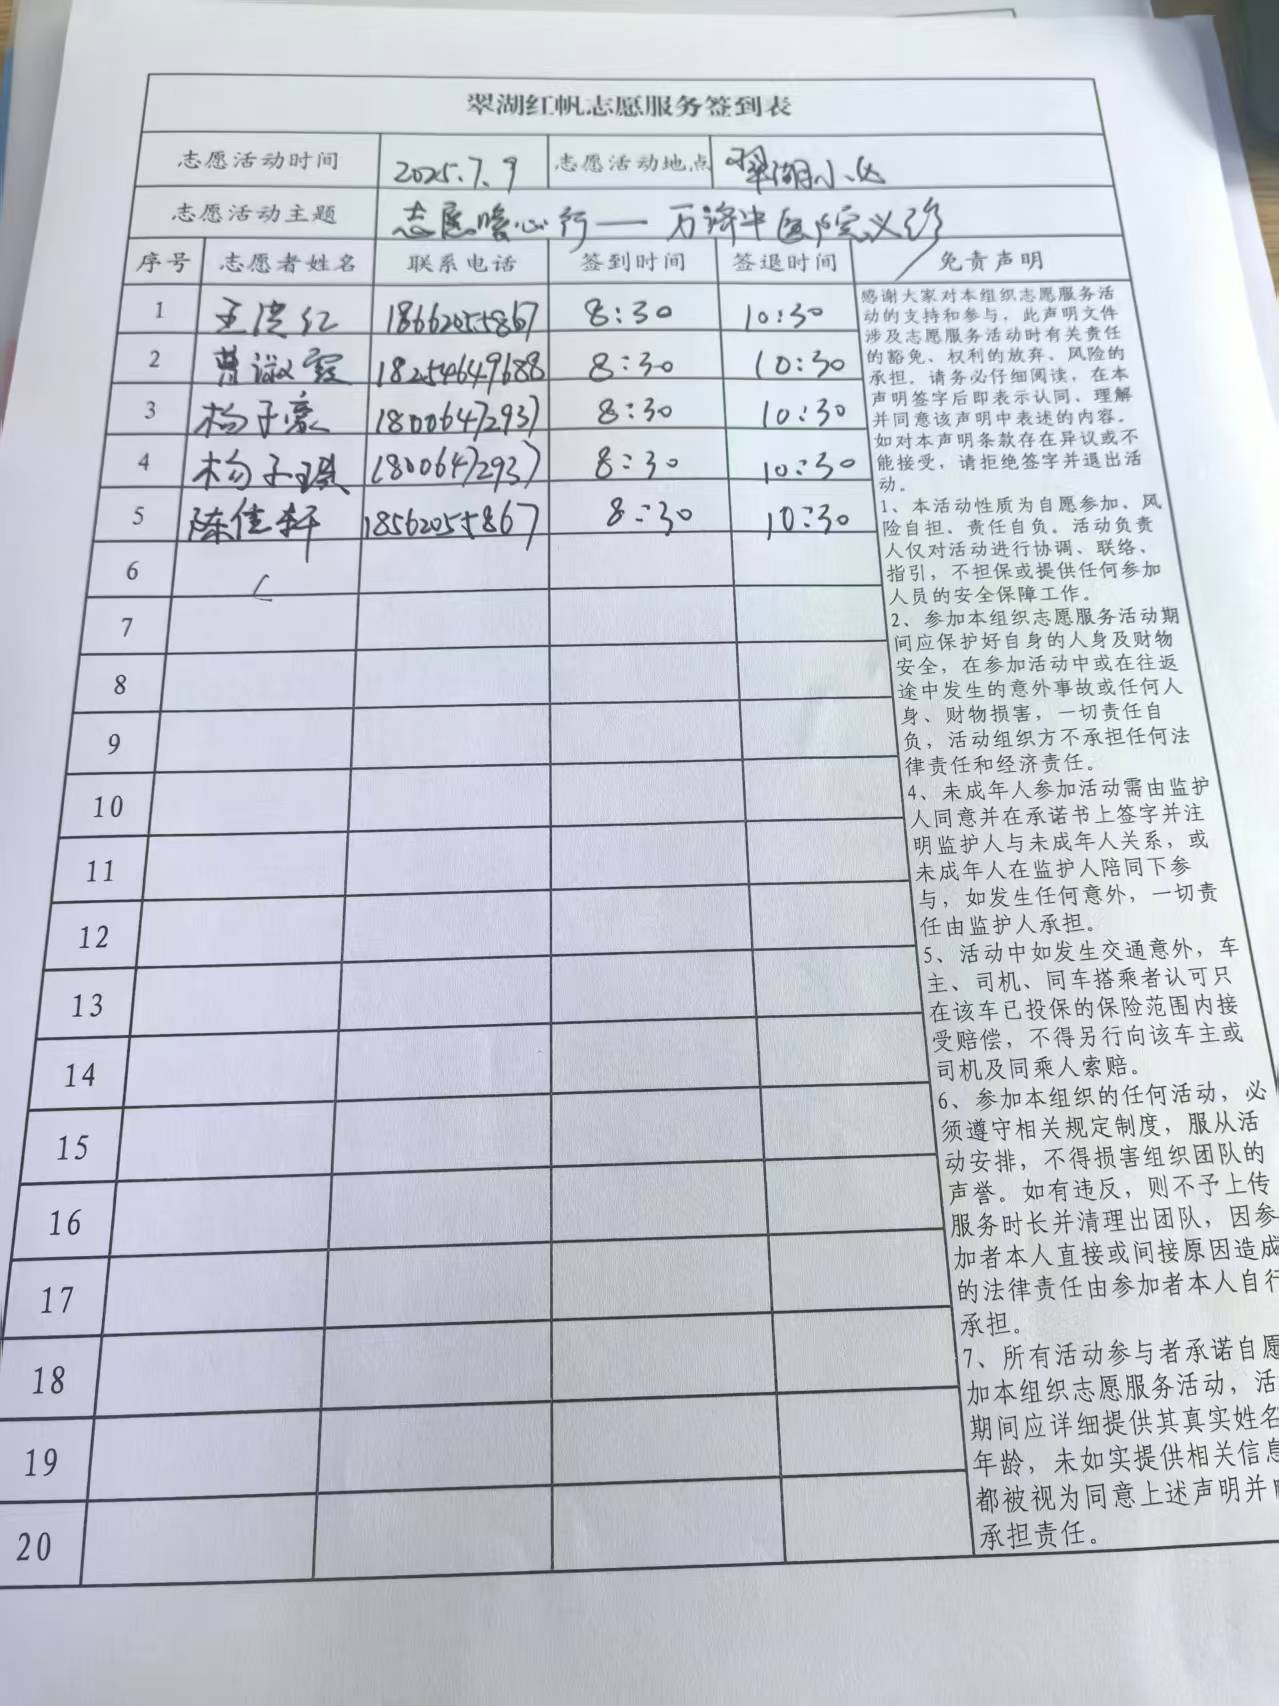 翠湖红帆志愿服务签到表
志愿活动时间 2025.7.9 志愿活动地点 翠湖小区
志愿活动主题 志愿暖心行——万 中医院义诊
序号 志愿者姓名 联系电话 签到时间 签退时间 免责声明
1 王洪红 18662055867 8:30 10:30
2 曹淑霞 18254649688 8:30 10:30
3 杨子豪 18006472937 8:30 10:30
4 杨子琪 18006472937 8:30 10:30
5 陈佳轩 18562055867 8:30 10:30
6
7
8
9
10
11
12
13
14
15
16
17
18
19
20
感谢大家对本组织志愿服务活
动的支持和参与，此声明文件
涉及志愿服务活动时有关责任
的豁免、权利的放弃、风险的
承担。请务必仔细阅读，在本
声明签字后即表示认同、理解
并同意该声明中表述的内容。
如对本声明条款存在异议或不
能接受，请拒绝签字并退出活
动。
1、本活动性质为自愿参加、风
险自担、责任自负。活动负责
人仅对活动进行协调、联络，
指引，不担保或提供任何参加
人员的安全保障工作。
2、参加本组织志愿服务活动期
间应保护好自身的人身及财物
安全，在参加活动中或在往返
途中发生的意外事故或任何人
身、财物损害，一切责任自
负，活动组织方不承担任何法
律责任和经济责任。
4、未成年人参加活动需由监护
人同意并在承诺书上签字并注
明监护人与未成年人关系，或
未成年人在监护人陪同下参
与，如发生任何意外，一切责
任由监护人承担。
5、活动中如发生交通意外，车
主、司机、同车搭乘者认可只
在该车已投保的保险范围内接
受赔偿，不得另行向该车主或
司机及同乘人索赔。
6、参加本组织的任何活动，必
须遵守相关规定制度，服从活
动安排，不得损害组织团队的
声誉。如有违反，则不予上传
服务时长并清理出团队，因参
加者本人直接或间接原因造成
的法律责任由参加者本人自行
承担。
7、所有活动参与者承诺自愿
加本组织志愿服务活动，活
期间应详细提供其真实姓名
年龄，未如实提供相关信息
都被视为同意上述声明并
承担责任。